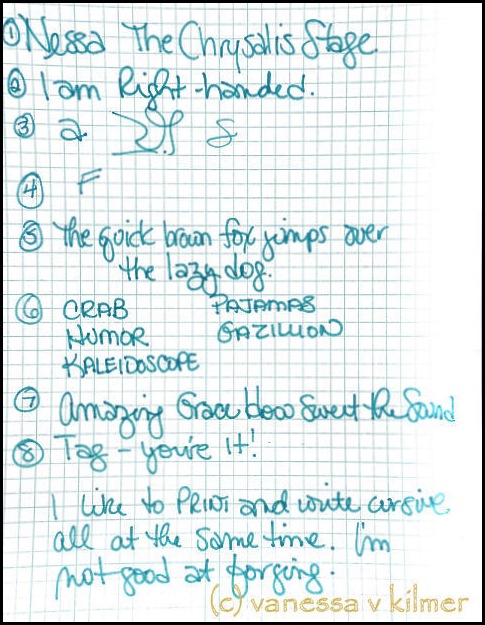 ① Nessa The Chrysalis Stage.
② I am Right-handed.
③ a &
④ F
⑤ the quick brown fox jumps over
the lazy dog.
⑥ CRAB PAJAMAS
HUMOR GAZILLION
KALEIDOSCOPE
⑦ Amazing Grace How Sweet the Sound
⑧ Tag - you're It!
I like to PRINT and write cursive
all at the same time. I'm
not good at forging.
(c) vanessa v kilmer